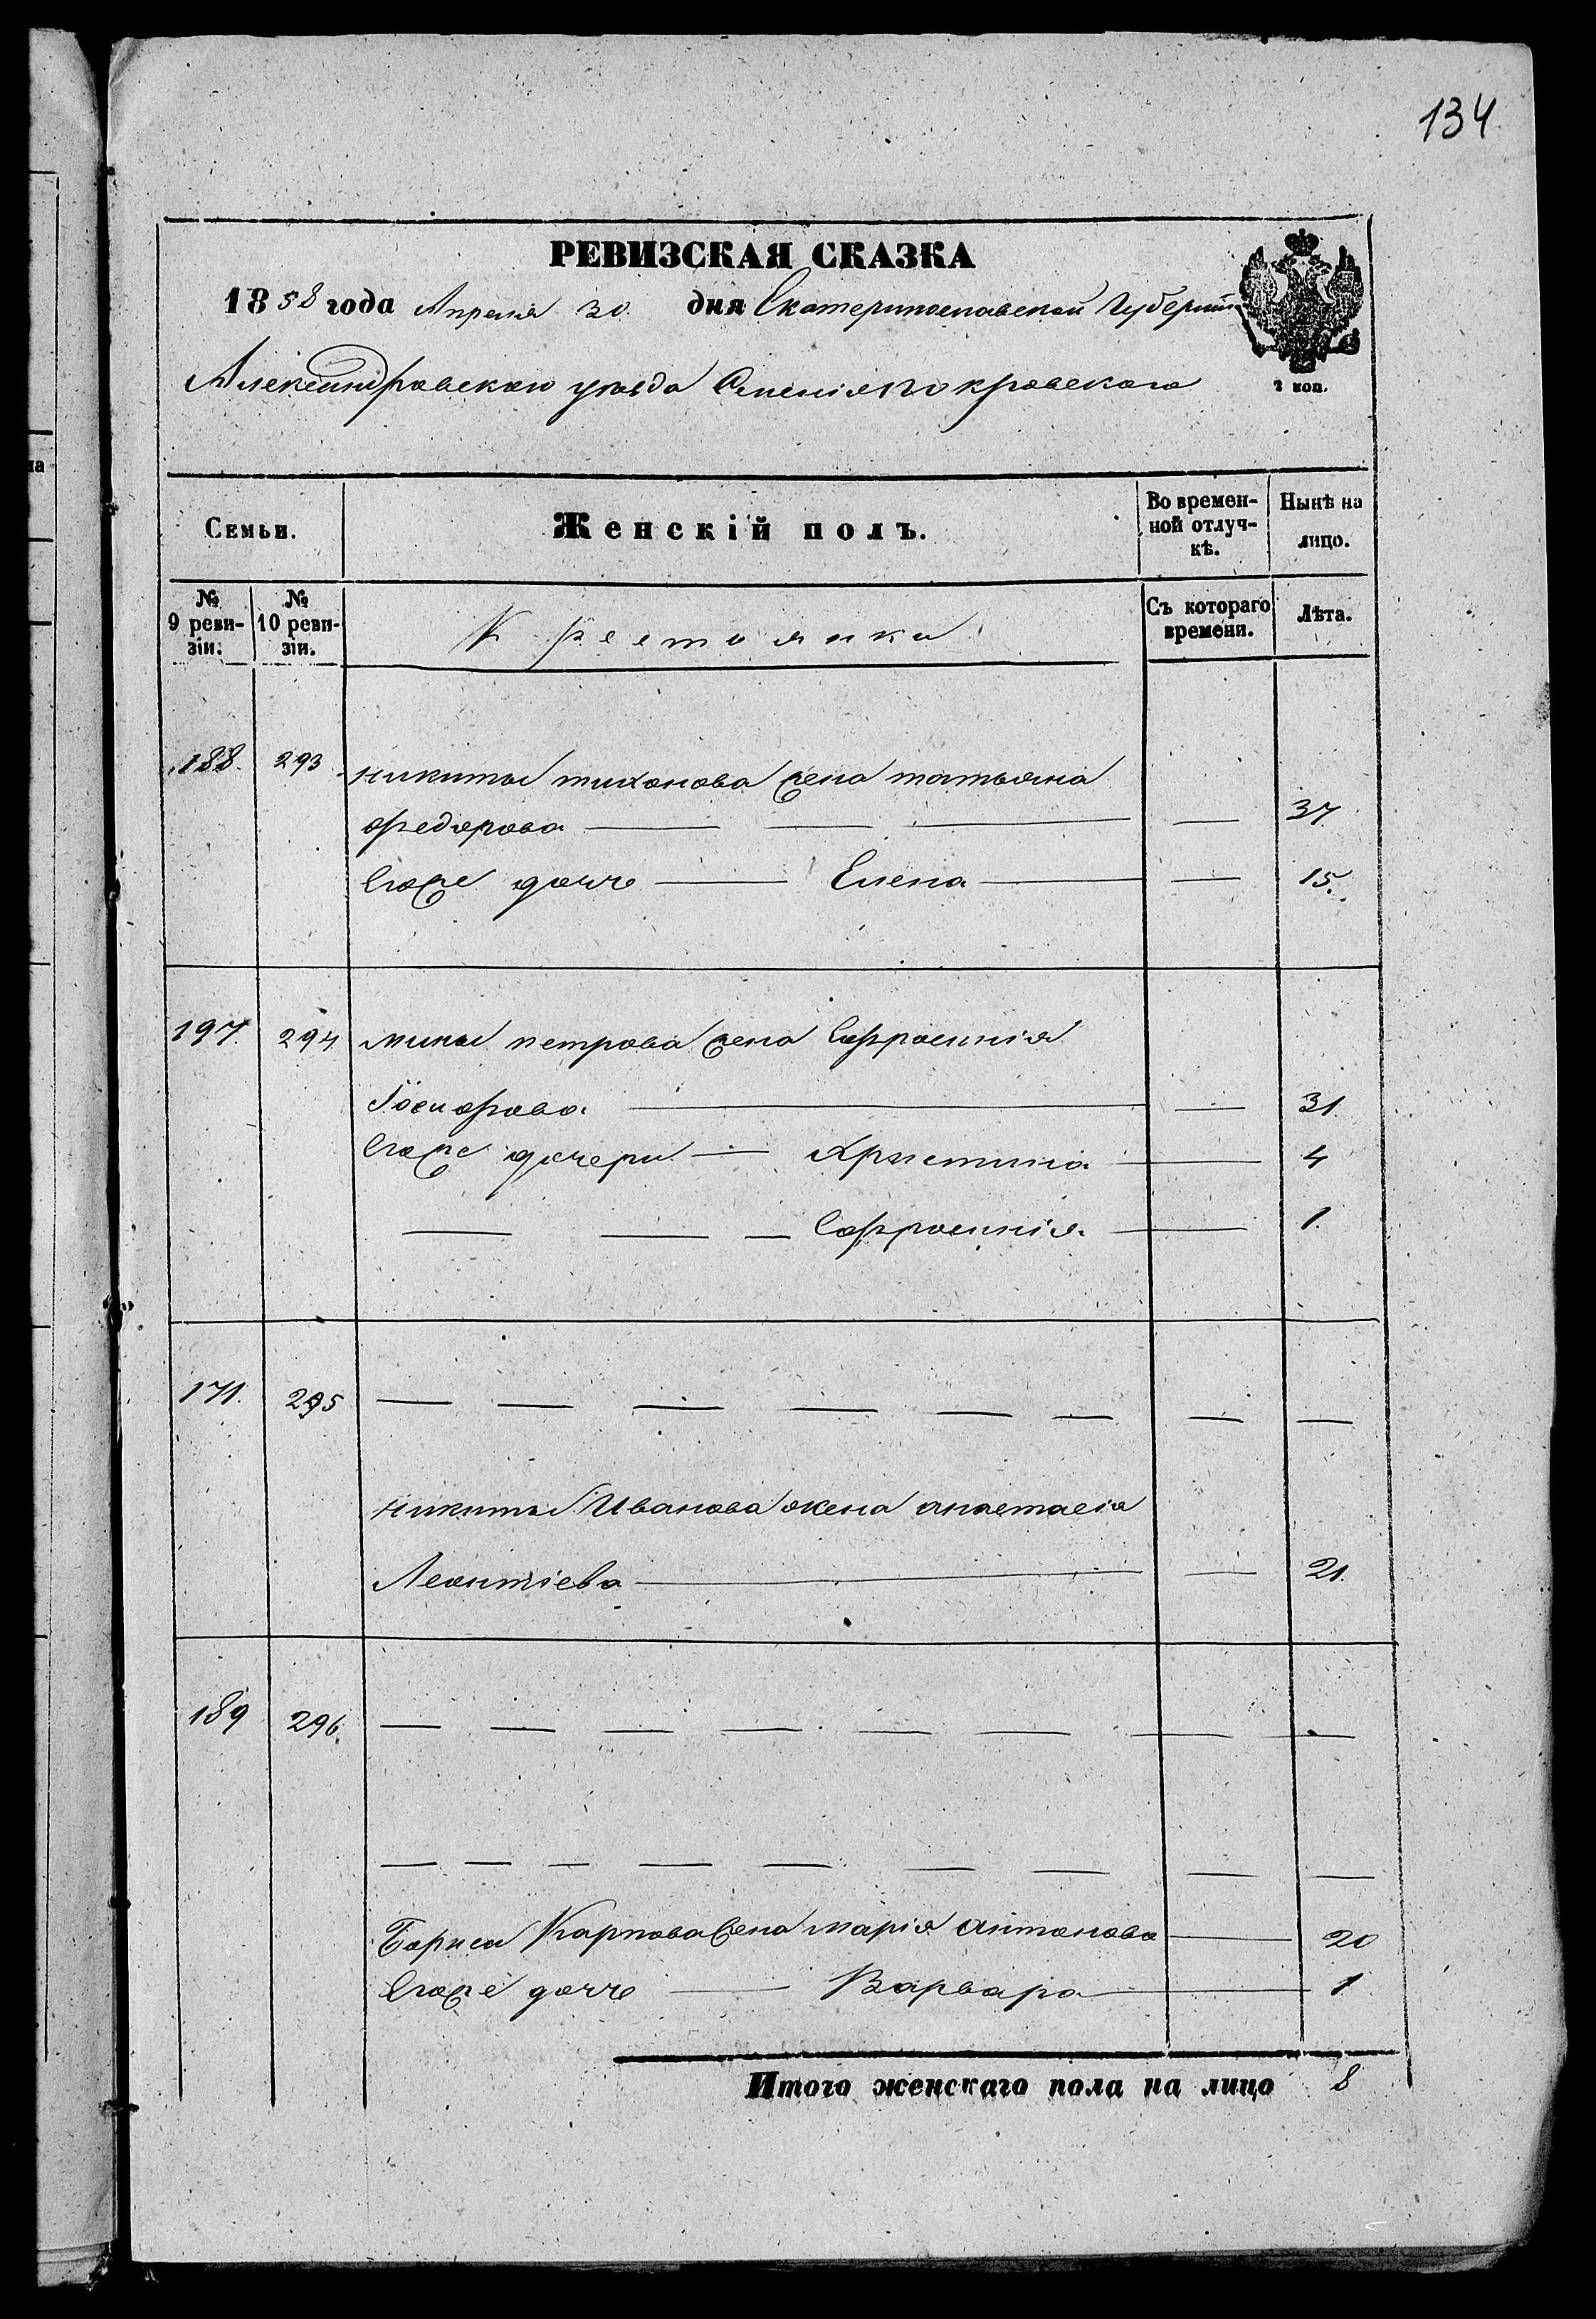 134
РЕВИЗСКАЯ СКАЗКА
1858 года Апреля 30 дня Екатеринославской Губернии
Александровского уезда Селенія Покровскаго
2 коп.
Семьи. Женскій полъ. Во временной отлучкѣ. Нынѣ на лицо.
№ 9 ревизіи. № 10 ревизіи. Крестьянки Съ котораго времени. Лѣта.
188. 293 никиты тихонова жена татьяна
федорова — — — — 37.
Егоже дочь — Елена — — 15.
197. 294 мины петрова жена Ефросинія
Никифорова — — 31
Егоже дочери — Христина — 4
— — — Ефросинія — 1.
171. 295 — — — — — — — —
никиты Иванова жена анастасія
Леонтіева — — 21.
189 296. — — — — — — — —
— — — — — — — — —
Бориса Карпова жена марія антонова — 20
Егоже дочь — Варвара — 1
Итого женскаго пола на лицо 8